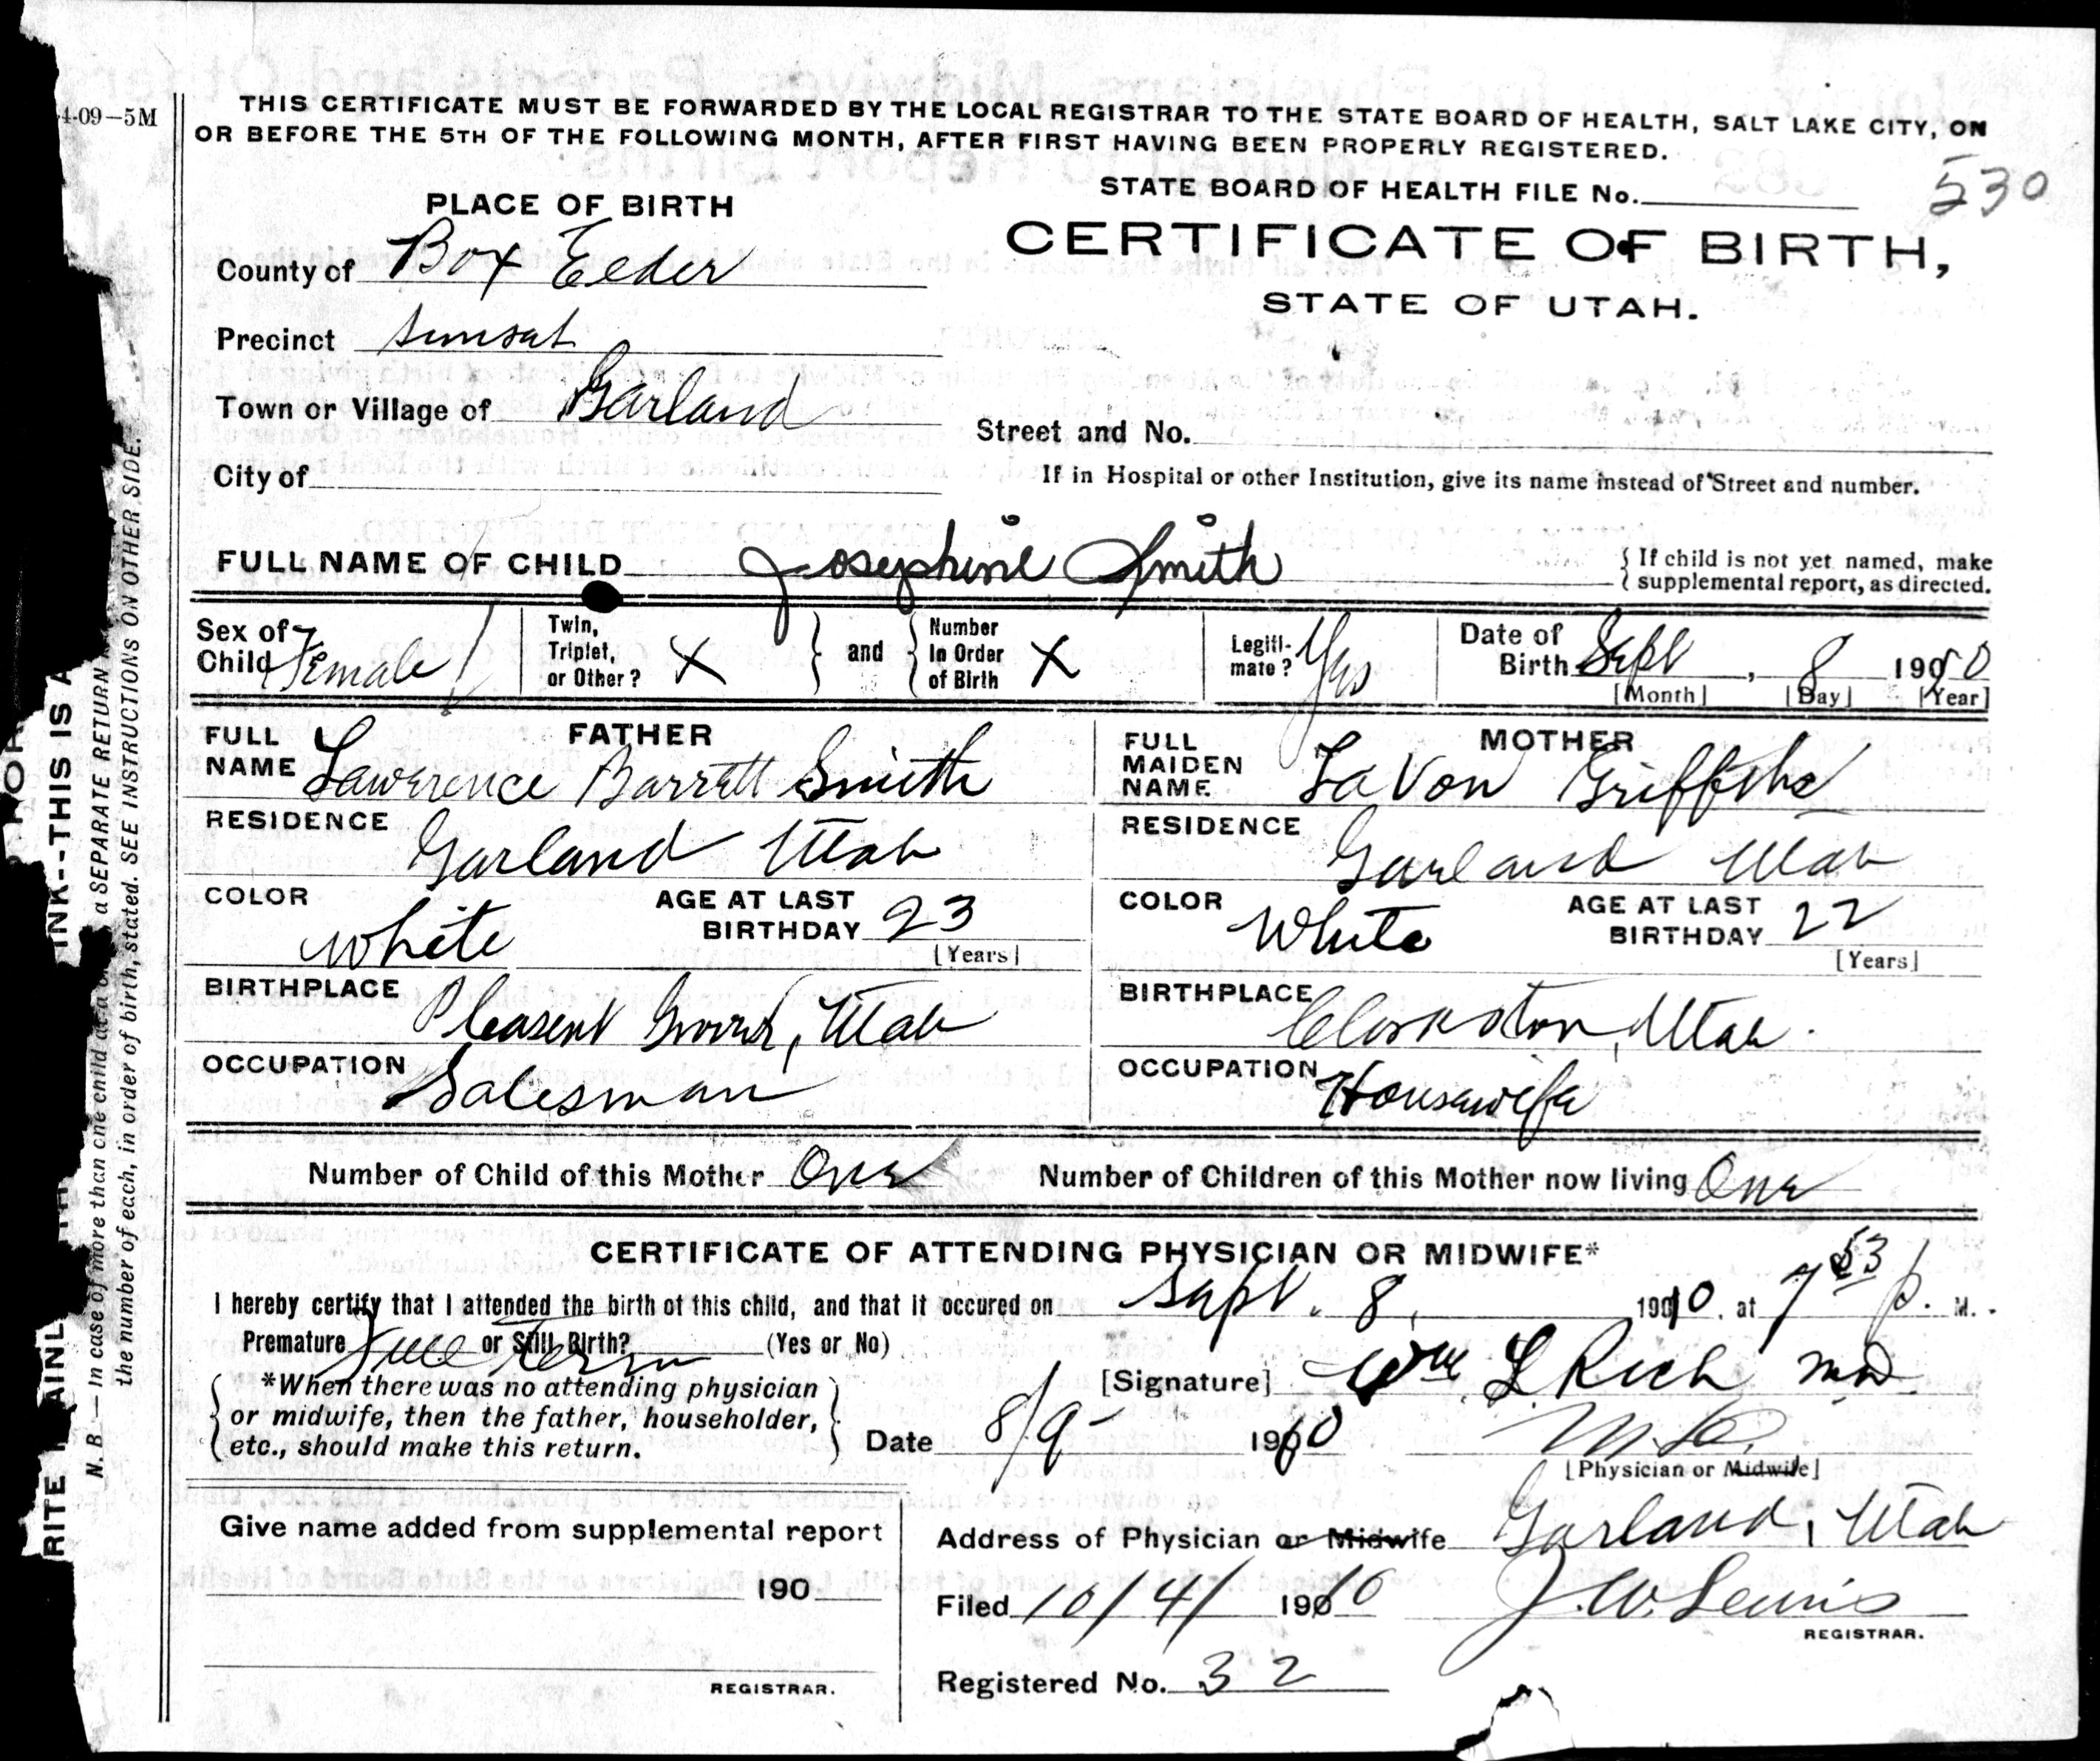 4-09-5M
THIS CERTIFICATE MUST BE FORWARDED BY THE LOCAL REGISTRAR TO THE STATE BOARD OF HEALTH, SALT LAKE CITY, ON
OR BEFORE THE 5TH OF THE FOLLOWING MONTH, AFTER FIRST HAVING BEEN PROPERLY REGISTERED.
STATE BOARD OF HEALTH FILE No. 530
PLACE OF BIRTH
CERTIFICATE OF BIRTH,
STATE OF UTAH.
County of Box Elder
Precinct Sunset
Town or Village of Garland
Street and No.
City of
If in Hospital or other Institution, give its name instead of Street and number.
FULL NAME OF CHILD Josephine Smith
{ If child is not yet named, make
supplemental report, as directed.
Sex of Child Female
Twin, Triplet, or Other? X } and { Number In Order of Birth X
Legiti-mate? Yes
Date of Birth Sept, 8 1910
[Month] [Day] [Year]
FATHER
FULL NAME Lawerence Barrett Smith
RESIDENCE Garland Utah
COLOR White AGE AT LAST BIRTHDAY 23
[Years]
BIRTHPLACE Pleasent Grove, Utah
OCCUPATION Salesman
MOTHER
FULL MAIDEN NAME LaVon Griffiths
RESIDENCE Garland Utah
COLOR White AGE AT LAST BIRTHDAY 22
[Years]
BIRTHPLACE Clarkston, Utah.
OCCUPATION Housewife
Number of Child of this Mother One Number of Children of this Mother now living One
CERTIFICATE OF ATTENDING PHYSICIAN OR MIDWIFE*
I hereby certify that I attended the birth of this child, and that it occured on Sept. 8, 1910. at 7 53 p. M.
Premature or Still Birth? Full term (Yes or No)
{ *When there was no attending physician
or midwife, then the father, householder,
etc., should make this return. }
[Signature] Wm L Rich MD
Date 8/9- 1910 M.D.
[Physician or Midwife]
Give name added from supplemental report
190
REGISTRAR.
Address of Physician or Midwife Garland, Utah
Filed 10/4/ 1910 J. W. Lewis
REGISTRAR.
Registered No. 32
INK--THIS IS A
N. B.—In case of more than one child at a a SEPARATE RETURN
the number of each, in order of birth, stated. SEE INSTRUCTIONS ON OTHER SIDE.